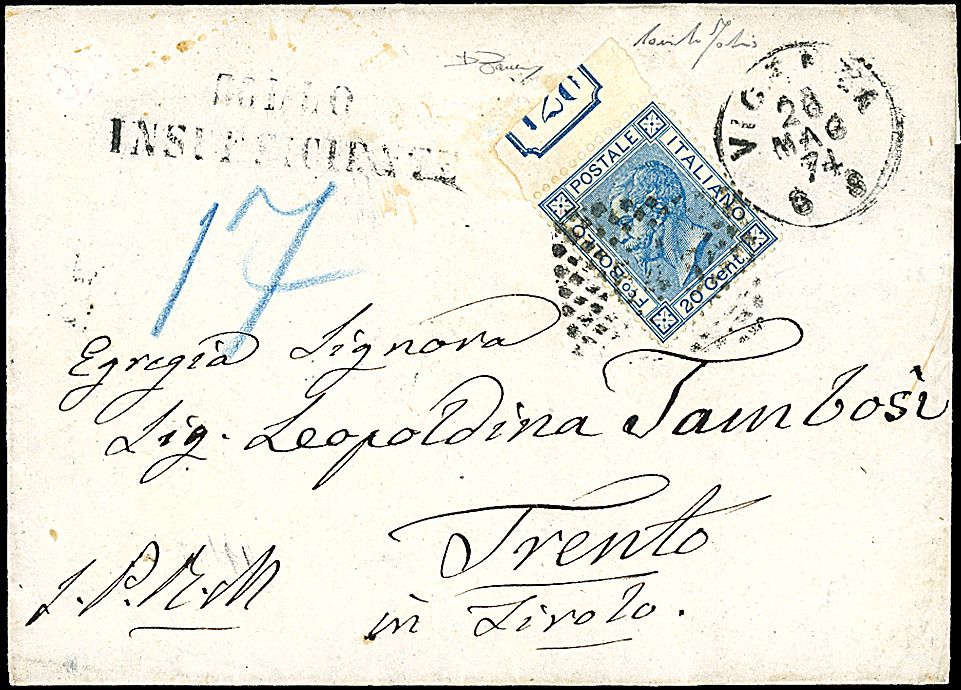 BOLLO
INSUFFICIENTE
17
120
POSTALE ITALIANO
Fco BOLLO
20 Cent.
VICENZA
28
MAG
74
6 S
Egregia Signora
Sig. Leopoldina Tambosi
Trento
in Tirolo.